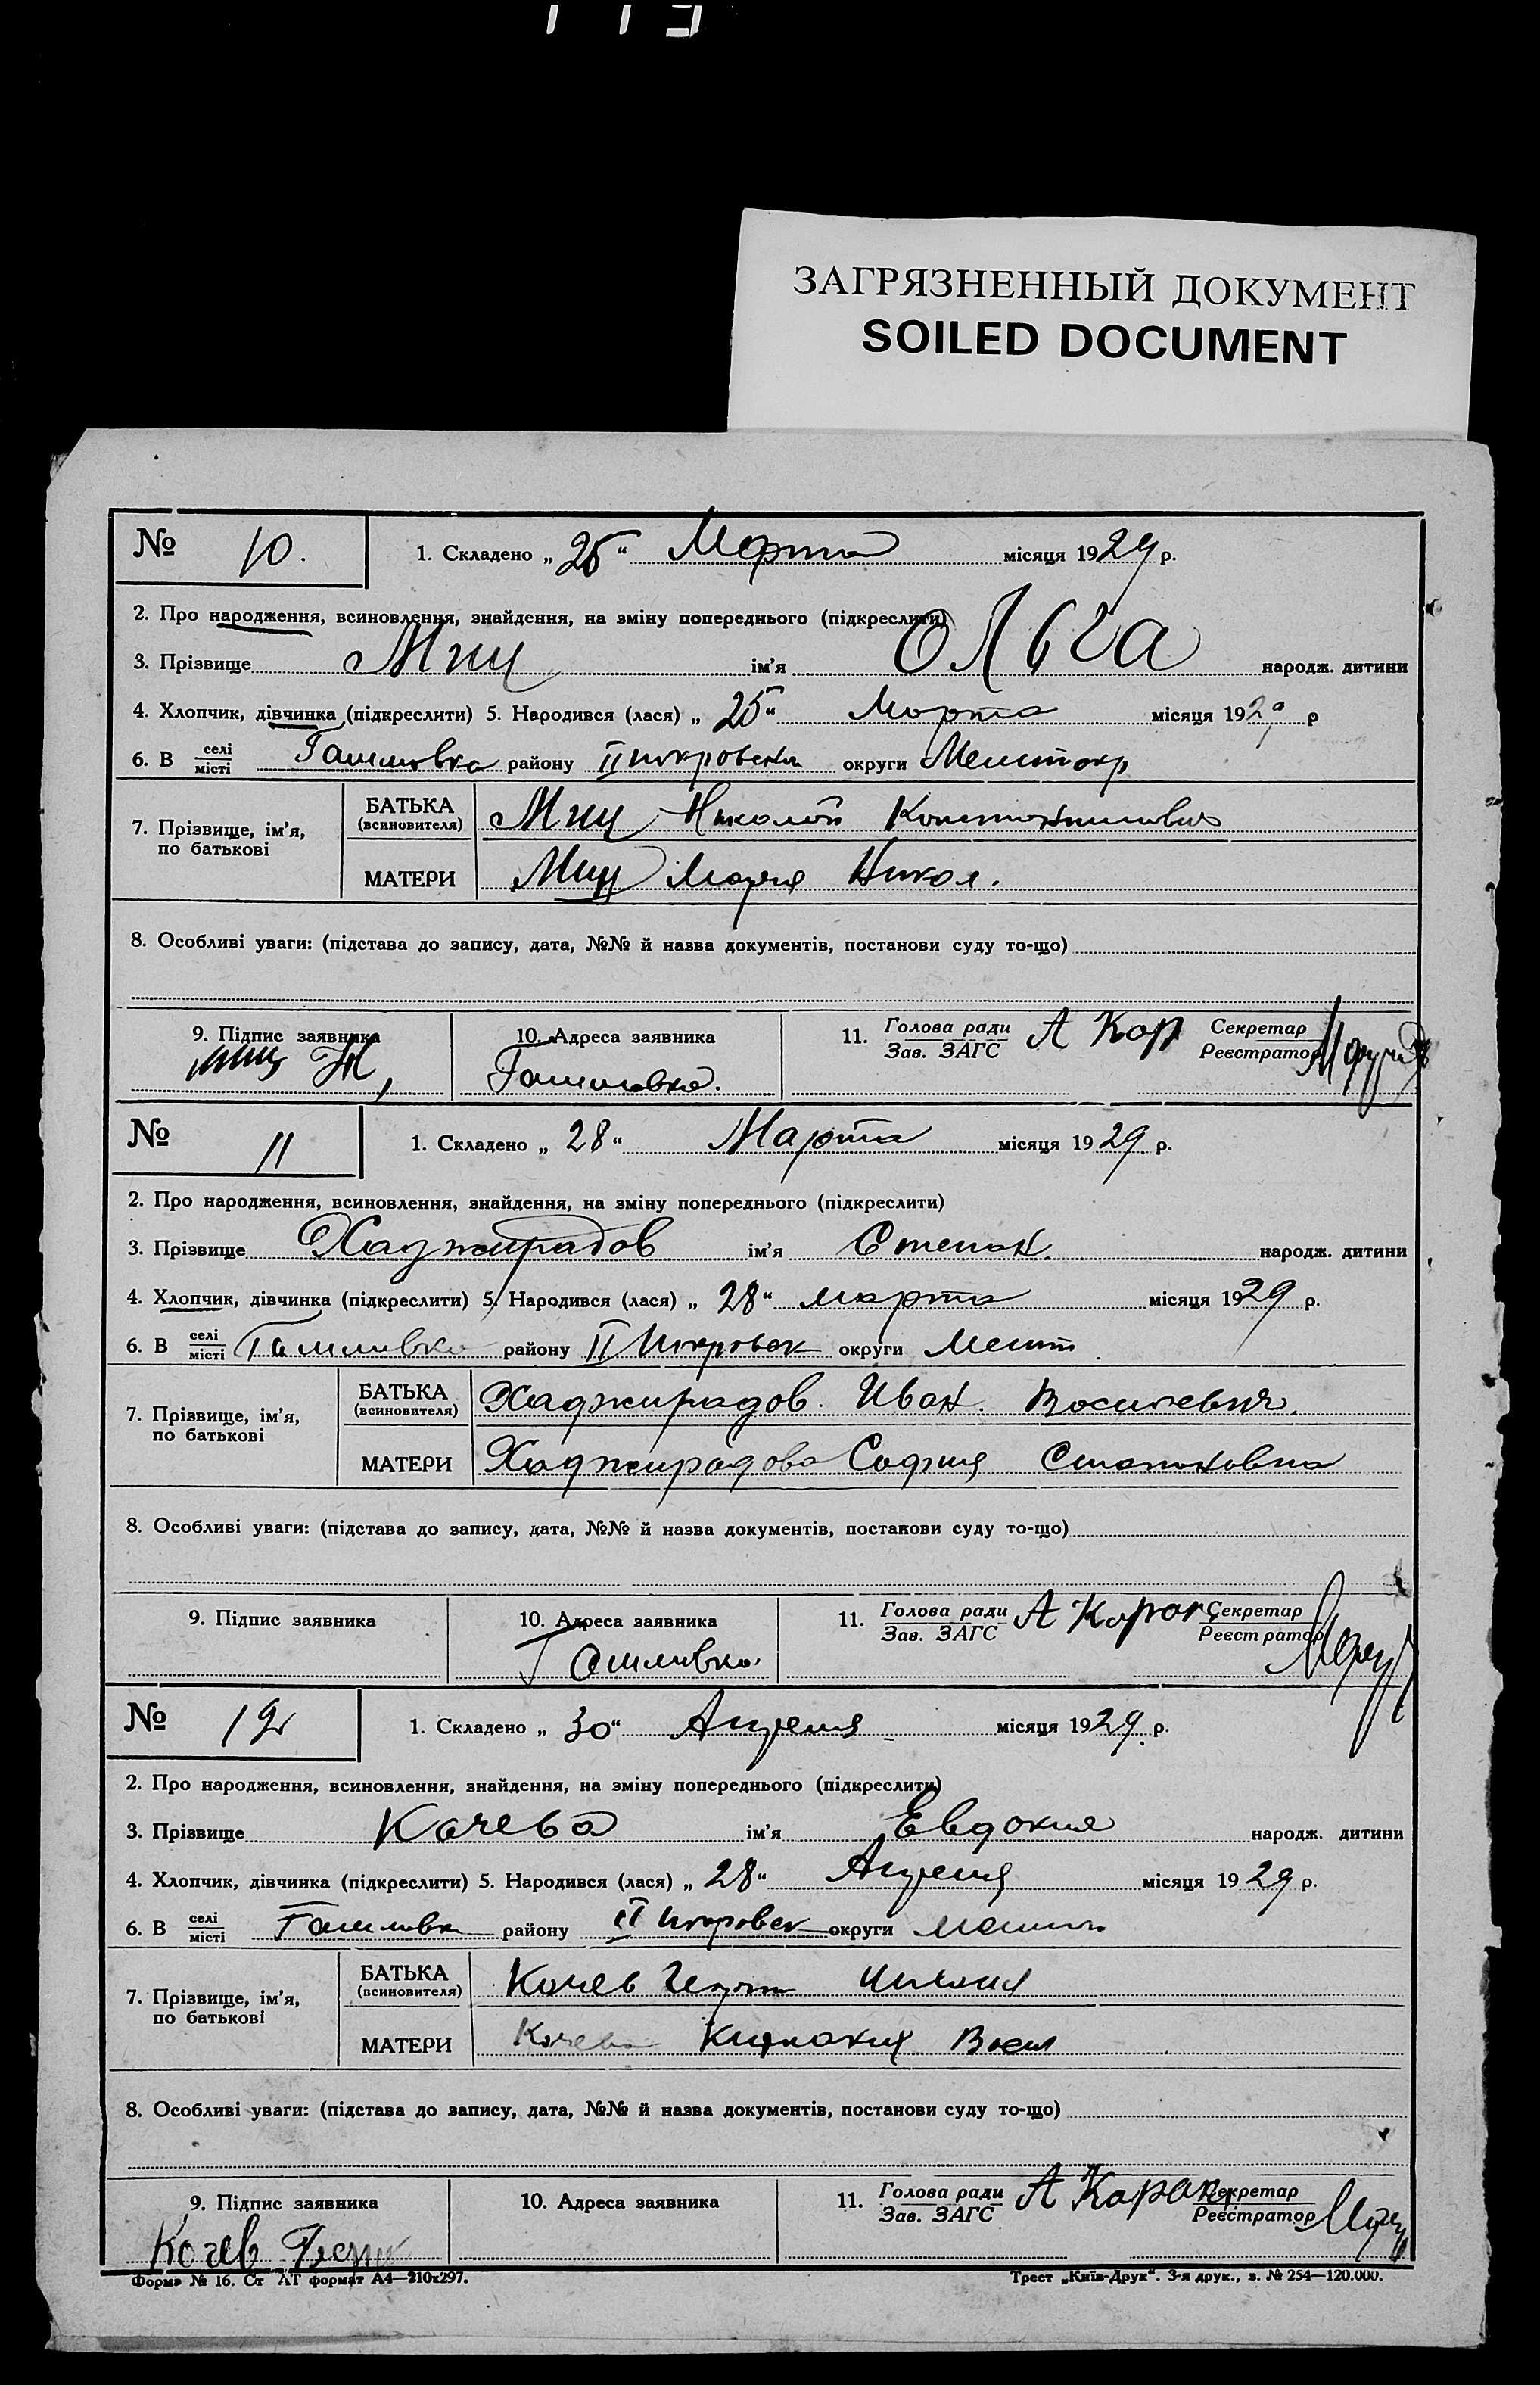 ЗАГРЯЗНЕННЫЙ ДОКУМЕНТ
SOILED DOCUMENT
№ 10. 1. Складено „25“ Марта місяця 1929 р.
2. Про народження, всиновлення, знайдення, на зміну попереднього (підкреслити)
3. Прізвище Миц ім'я Ольга народж. дитини
4. Хлопчик, дівчинка (підкреслити) 5. Народився (лася) „25“ Марта місяця 1929 р
6. В селі місті району округи
7. Прізвище, ім'я, по батькові
БАТЬКА (всиновителя) Миц Николай Константинович
МАТЕРИ Миц Мария Никол.
8. Особливі уваги: (підстава до запису, дата, №№ й назва документів, постанови суду то-що)
9. Підпис заявника 10. Адреса заявника 11. Голова ради Зав. ЗАГС А Кар Секретар Реєстратор
Миц Н
№ 11 1. Складено „28“ Марта місяця 1929 р.
2. Про народження, всиновлення, знайдення, на зміну попереднього (підкреслити)
3. Прізвище Хаджирадов ім'я Степан народж. дитини
4. Хлопчик, дівчинка (підкреслити) 5. Народився (лася) „28“ марта місяця 1929 р.
6. В селі місті району II Покровск округи
7. Прізвище, ім'я, по батькові
БАТЬКА (всиновителя) Хаджирадов Иван Василевич.
МАТЕРИ Хаджирадова София
8. Особливі уваги: (підстава до запису, дата, №№ й назва документів, постанови суду то-що)
9. Підпис заявника 10. Адреса заявника 11. Голова ради Зав. ЗАГС А Карак Секретар Реєстратор
№ 12 1. Складено „30“ Апреля місяця 1929 р.
2. Про народження, всиновлення, знайдення, на зміну попереднього (підкреслити)
3. Прізвище Качева ім'я Евдокия народж. дитини
4. Хлопчик, дівчинка (підкреслити) 5. Народився (лася) „28“ Апреля місяця 1929 р.
6. В селі місті району II Покровск округи
7. Прізвище, ім'я, по батькові
БАТЬКА (всиновителя) Качев
МАТЕРИ Качева Васил
8. Особливі уваги: (підстава до запису, дата, №№ й назва документів, постанови суду то-що)
9. Підпис заявника 10. Адреса заявника 11. Голова ради Зав. ЗАГС А Карак Секретар Реєстратор
Качев
Форма № 16. Ст АТ формат А4—210х297. Трест „Київ-Друк“. 3-я друк., з. № 254—120.000.